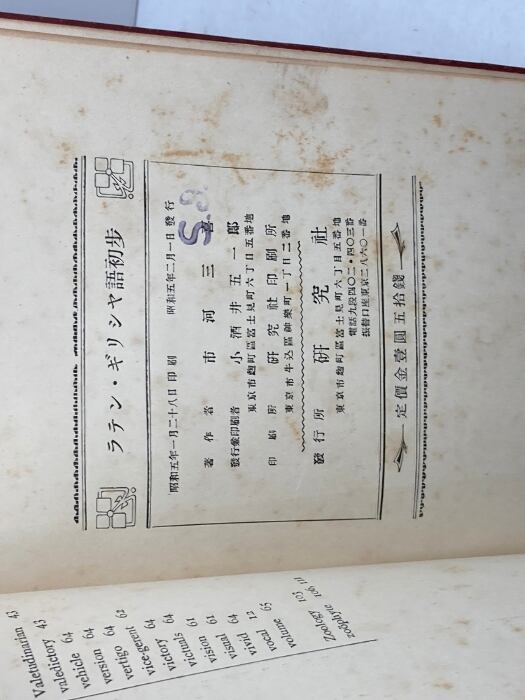 ラテン・ギリシヤ語初步
昭和五年一月二十八日印刷
昭和五年二月一日發行
著作者 市河三喜
S.a.
發行兼印刷者 小酒井五一郎
東京市麴町區富士見町六丁目五番地
印刷所 研究社印刷所
東京市牛込區神樂町一丁目二番地
發行所 研究社
東京市麴町區富士見町六丁目五番地
電話九段四〇二・四〇三番
振替口座東京二八六〇一番
定價金壹圓五拾錢
Valetudinarium 43
valedictory 43
vehicle 64
version 64
vertigo 62
vice-gerent 64
victory 64
victuals 61
vision 64
visual 64
vivid 12
vocal 65
volume
Zoology 105 111
zoophyte 106